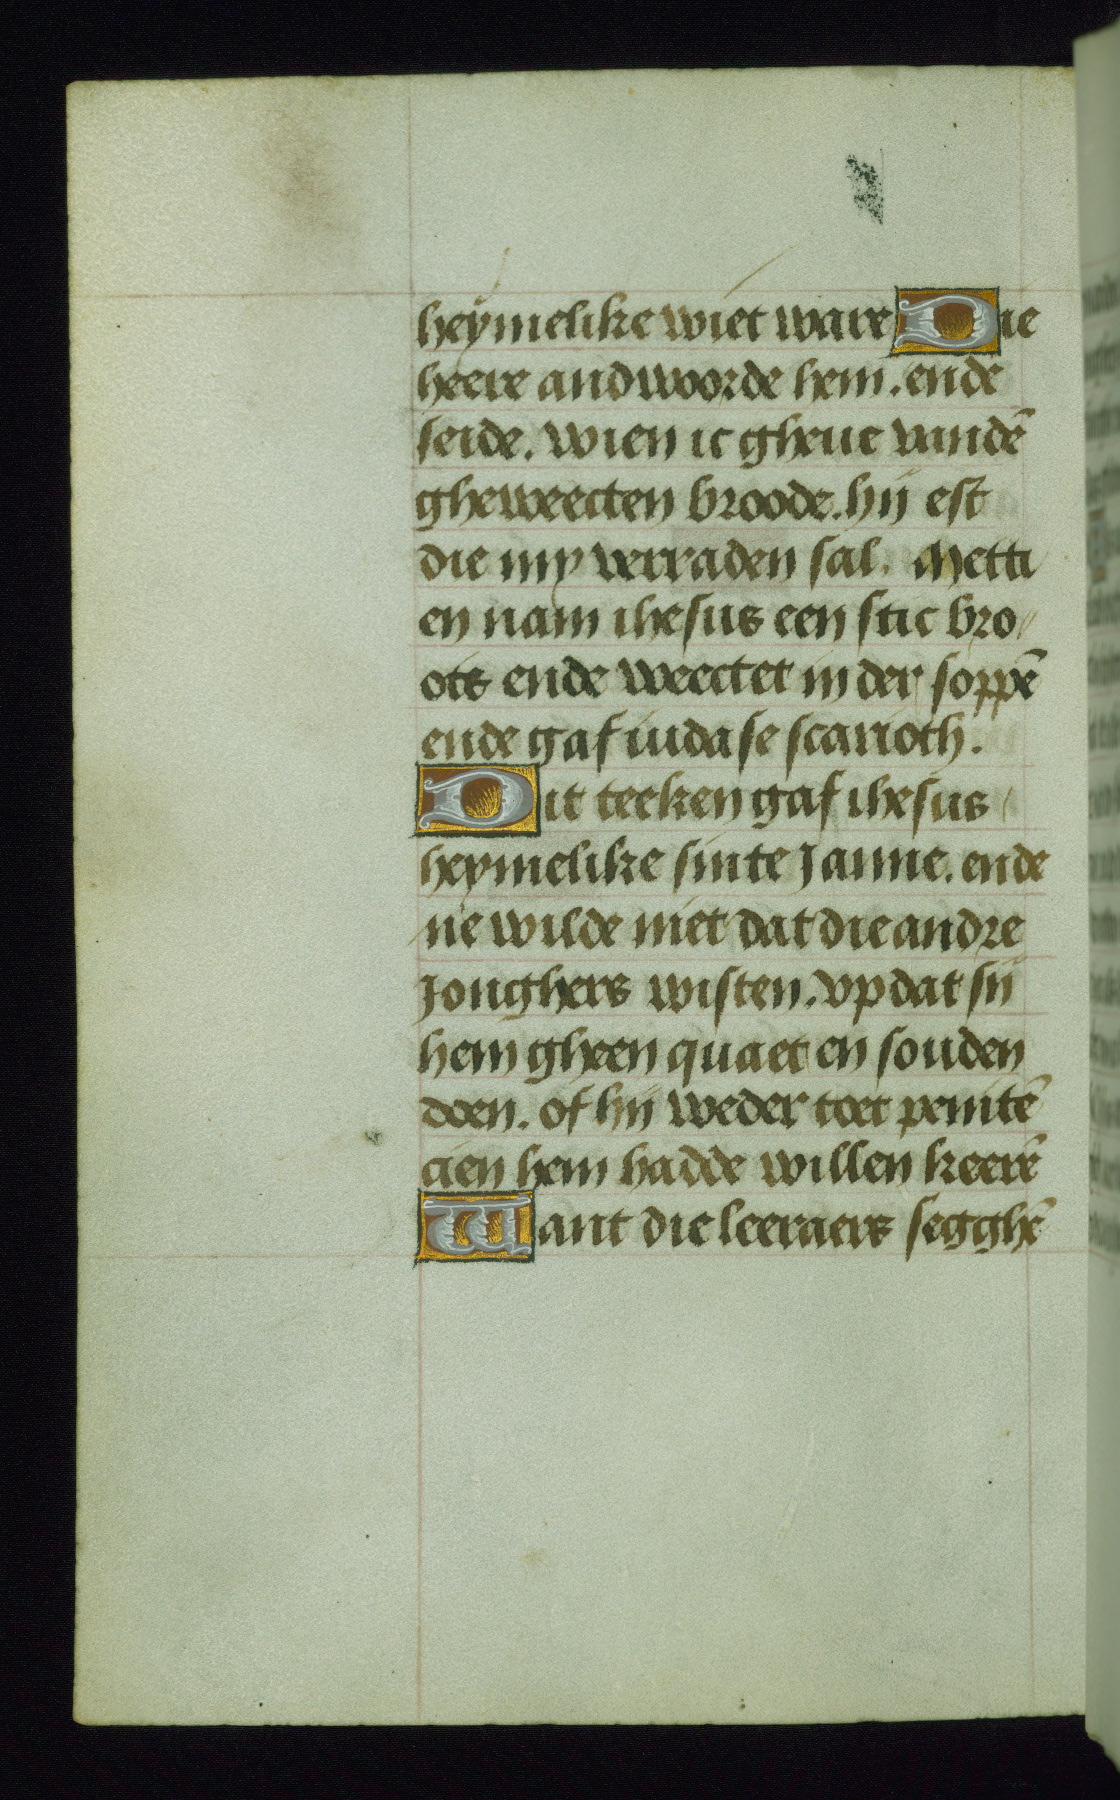 heymelike wiet ware Die
heere andwoorde hem. ende
seide. wien ic gheue vandē
gheweecten broode. hij est
die my verraden sal. Metti
en nam ihesus een stic bro/
ots ende weectet in der soppē
ende gaf iudase scarioth.
Dit teeken gaf ihesus
heymelike sinte Janne. ende
ne wilde niet dat die andre
Jonghers wisten. vp dat sij
hem gheen quaet en souden
doen. of hij weder toet penitē
cien hem hadde willen keerē
Want die leeraers segghē